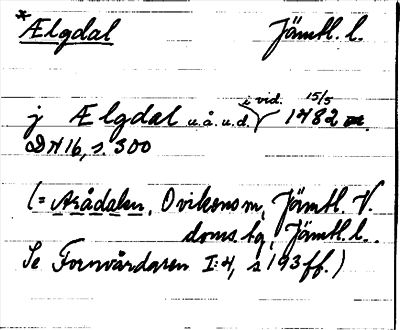 *Ælgdal Jämtl. l.
i vid. 15/5
j Ælgdal u.å.u.d. 1482
DN 16, s. 300
(= Arådalen, Ovikens sn, Jämtl. V.
doms. tg, Jämtl. l.
Se Fornvårdaren I:4, s 193 ff.)